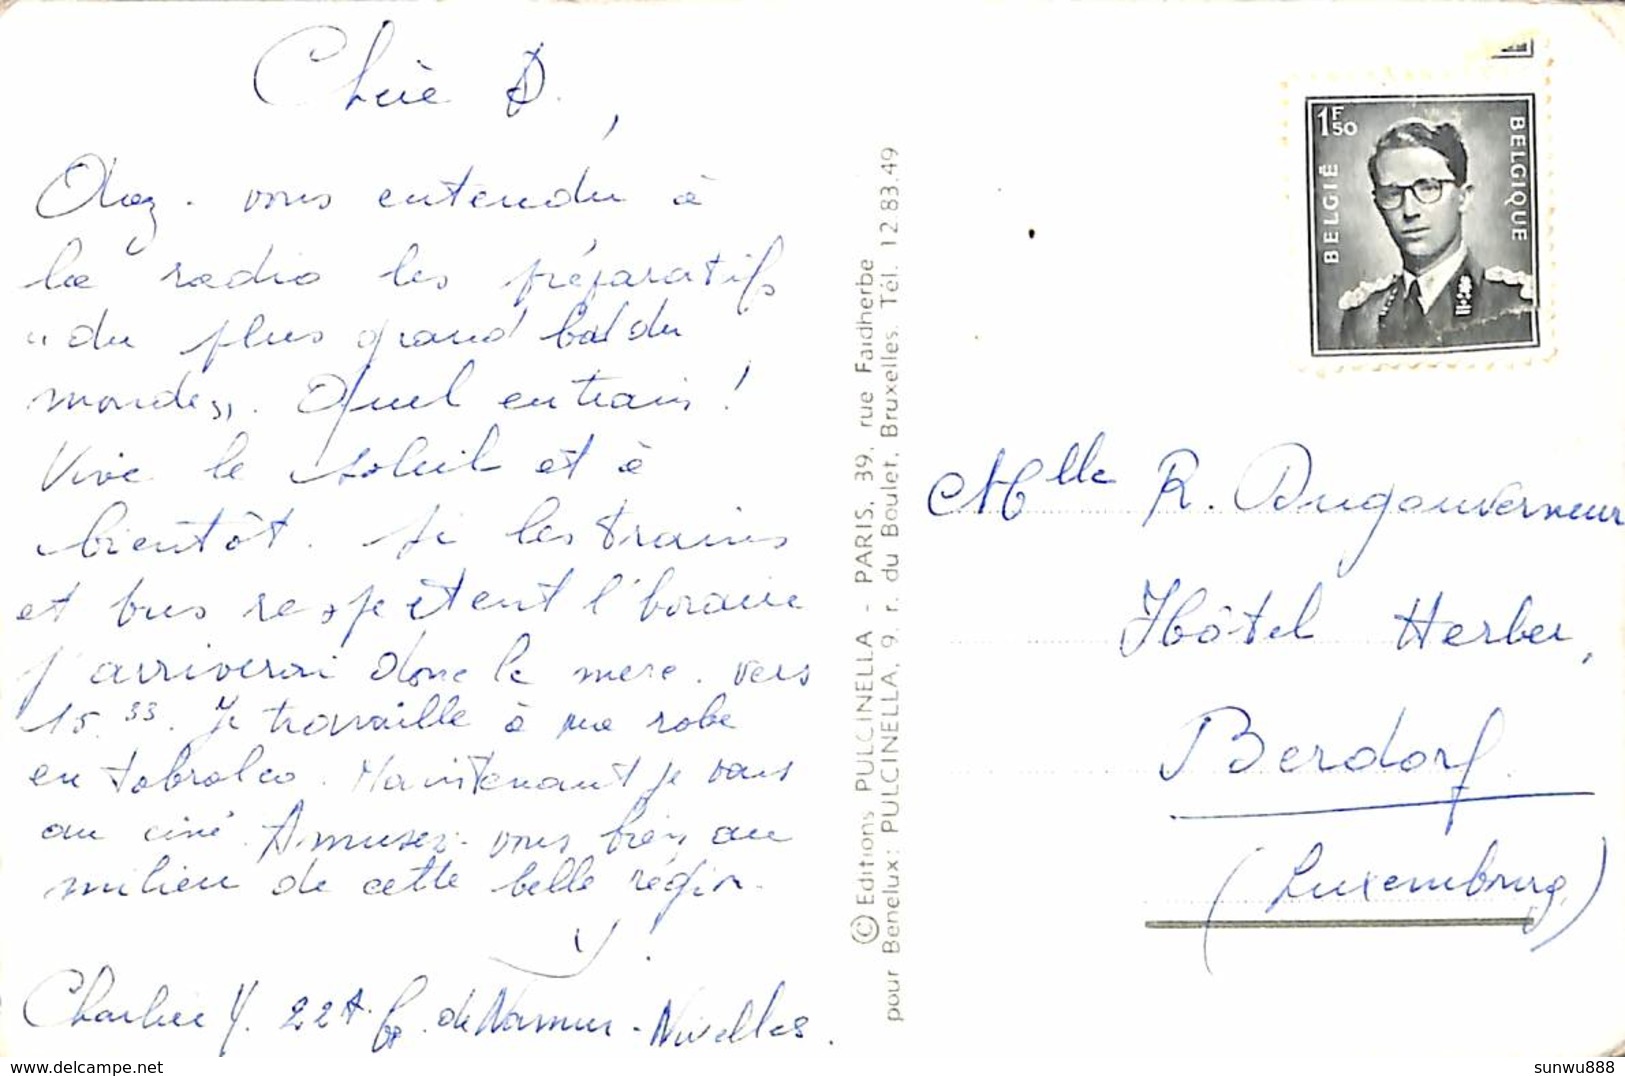 Chère D.,
Avez-vous entendu à
la radio les préparatifs
"du plus grand bal du
monde". Quel entrain !
Vive le soleil et à
bientôt. Si les trains
et bus respectent l'horaire
j'arriverai donc le merc. vers
15.33. Je travaille à ma robe
en tobralco. Maintenant je vais
au ciné. Amusez-vous bien au
milieu de cette belle région.
Y.
Charlier Y. 22A. fg. de Namur - Nivelles.
© Editions PULCINELLA - PARIS, 39, rue Faidherbe
pour Benelux: PULCINELLA, 9, r. du Boulet, Bruxelles. Tél. 12.83.49
1F50
BELGIË
BELGIQUE
Mlle R. Dugouverneur
Hôtel Herber,
Berdorf
(Luxembourg)
https://www.delcampe.net
sunwu888